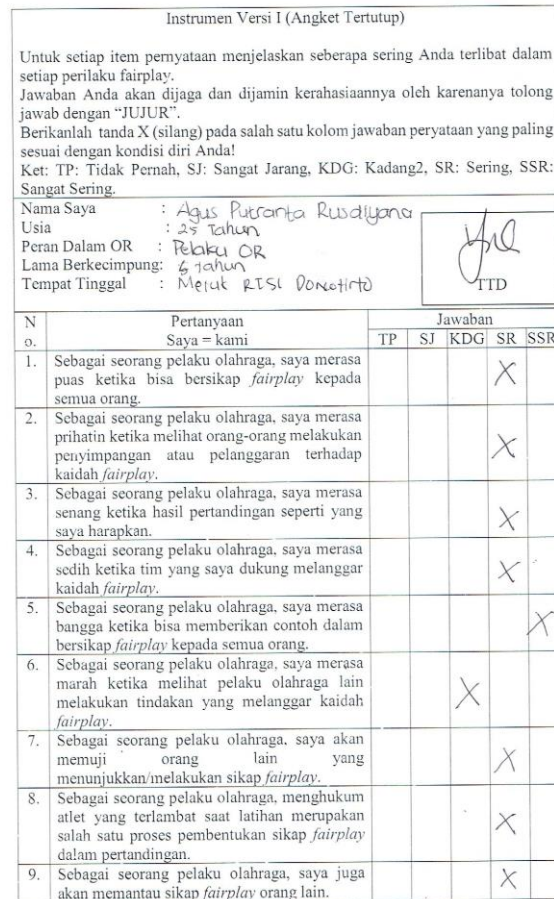 Instrumen Versi I (Angket Tertutup)
Untuk setiap item pernyataan menjelaskan seberapa sering Anda terlibat dalam
setiap perilaku fairplay.
Jawaban Anda akan dijaga dan dijamin kerahasiaannya oleh karenanya tolong
jawab dengan “JUJUR”.
Berikanlah tanda X (silang) pada salah satu kolom jawaban peryataan yang paling
sesuai dengan kondisi diri Anda!
Ket: TP: Tidak Pernah, SJ: Sangat Jarang, KDG: Kadang2, SR: Sering, SSR:
Sangat Sering.
Nama Saya : Agus Putranta Rusdiyana
Usia : 25 Tahun
Peran Dalam OR : Pelaku OR
Lama Berkecimpung: 6 tahun
Tempat Tinggal : Donotirto
TTD
N
o.
Pertanyaan
Saya = kami
Jawaban
TP SJ KDG SR SSR
1. Sebagai seorang pelaku olahraga, saya merasa
puas ketika bisa bersikap fairplay kepada
semua orang.
X
2. Sebagai seorang pelaku olahraga, saya merasa
prihatin ketika melihat orang-orang melakukan
penyimpangan atau pelanggaran terhadap
kaidah fairplay.
X
3. Sebagai seorang pelaku olahraga, saya merasa
senang ketika hasil pertandingan seperti yang
saya harapkan.
X
4. Sebagai seorang pelaku olahraga, saya merasa
sedih ketika tim yang saya dukung melanggar
kaidah fairplay.
X
5. Sebagai seorang pelaku olahraga, saya merasa
bangga ketika bisa memberikan contoh dalam
bersikap fairplay kepada semua orang.
X
6. Sebagai seorang pelaku olahraga, saya merasa
marah ketika melihat pelaku olahraga lain
melakukan tindakan yang melanggar kaidah
fairplay.
X
7. Sebagai seorang pelaku olahraga, saya akan
memuji orang lain yang
menunjukkan/melakukan sikap fairplay.
X
8. Sebagai seorang pelaku olahraga, menghukum
atlet yang terlambat saat latihan merupakan
salah satu proses pembentukan sikap fairplay
dalam pertandingan.
X
9. Sebagai seorang pelaku olahraga, saya juga
akan memantau sikap fairplay orang lain.
X